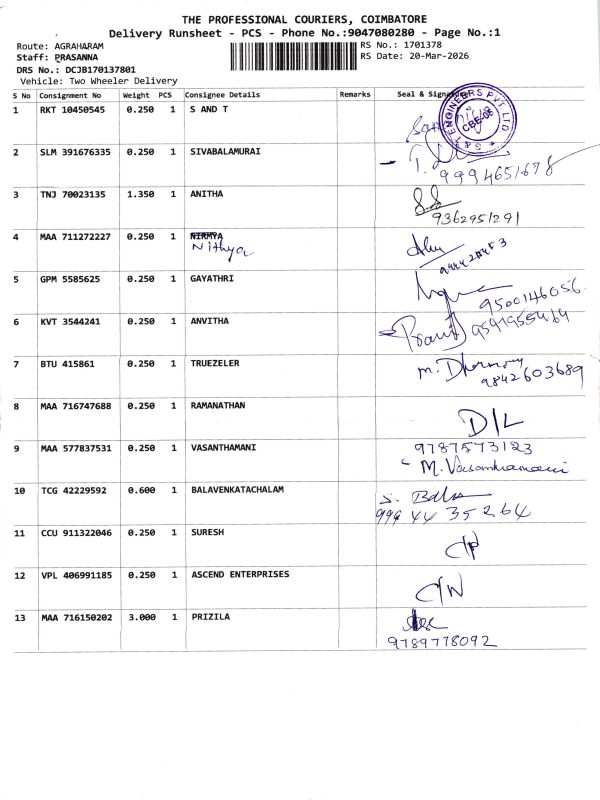 THE PROFESSIONAL COURIERS, COIMBATORE
Delivery Runsheet - PCS - Phone No.:9047080280 - Page No.:1
Route: AGRAHARAM
RS No.: 1701378
Staff: PRASANNA
RS Date: 20-Mar-2026
DRS No.: DCJB170137801
Vehicle: Two Wheeler Delivery
S No Consignment No Weight PCS Consignee Details Remarks Seal &
1 RKT 10450545 0.250 1 S AND T
S&T ENGINEERS PVT LTD
CBE-08
2 SLM 391676335 0.250 1 SIVABALAMURAI
9994651678
3 TNJ 70023135 1.350 1 ANITHA
9362951291
4 MAA 711272227 0.250 1
Nithya
5 GPM 5585625 0.250 1 GAYATHRI
9500146056
6 KVT 3544241 0.250 1 ANVITHA
7 BTU 415861 0.250 1 TRUEZELER
9842603689
8 MAA 716747688 0.250 1 RAMANATHAN
D/L
9 MAA 577837531 0.250 1 VASANTHAMANI
9787573123
M. Vasanthamani
10 TCG 42229592 0.600 1 BALAVENKATACHALAM
S. Bala
999 44 35 264
11 CCU 911322046 0.250 1 SURESH
12 VPL 406991185 0.250 1 ASCEND ENTERPRISES
13 MAA 716150202 3.000 1 PRIZILA
9789778092